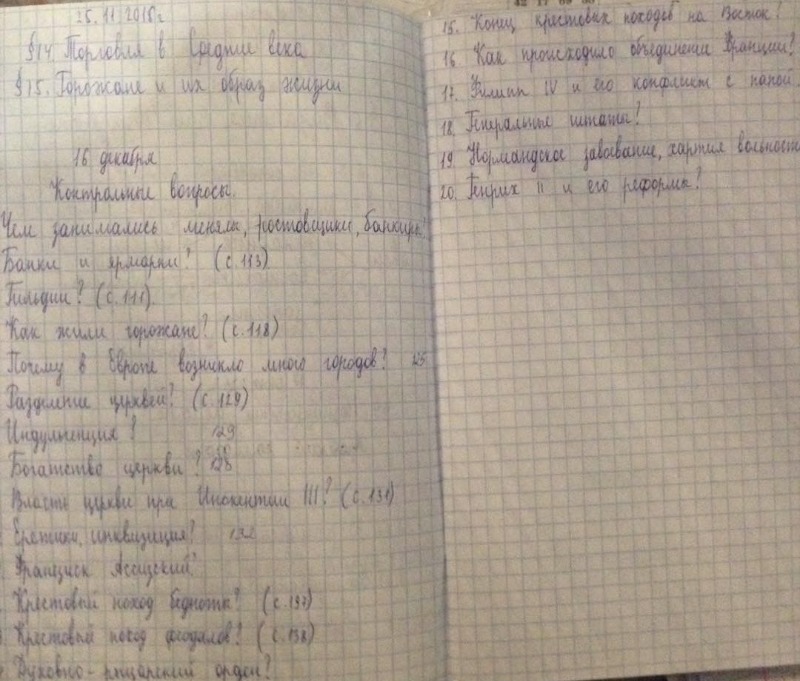 25.11.2015г
§14. Торговля в Средние века
§15. Горожане и их образ жизни
16 декабря
Контрольные вопросы.
Чем занимались менялы, ростовщики, банкиры?
Банки и ярмарки? (с.113)
Гильдии? (с.111)
Как жили горожане? (с.118)
Почему в Европе возникло много городов? 125
Разделение церквей? (с.129)
Индульгенция? 129
Богатство церкви? 128
Власть церкви при Инокентии III? (с.131)
Еретики, инквизиция?
Франциск Ассизский?
Крестовый поход бедноты? (с.137)
Крестовый поход феодалов? (с.138)
Духовно-рыцарский орден?
15. Конец крестовых походов на Восток?
16. Как происходило объединение Франции?
17. Филипп IV и его конфликт с папой.
18. Генеральные штаты?
19. Нормандское завоевание, хартия вольности
20. Генрих II и его реформы?